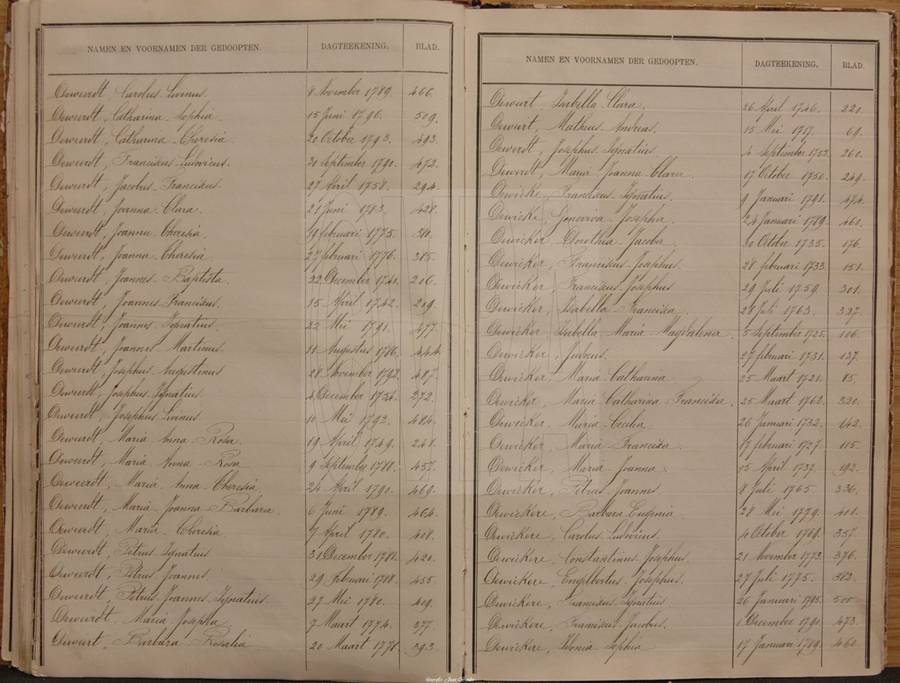 NAMEN EN VOORNAMEN DER GEDOOPTEN. DAGTEEKENING. BLAD.
Dewerdt, Carolus Livinus 8 November 1789. 466.
Dewerdt, Catharina Sophia 15 Juni 1796. 509.
Dewerdt, Catharina Theresia 20 October 1793. 493.
Dewerdt, Franciscus Ludovicus. 30 September 1790. 472.
Dewerdt, Jacobus Franciscus. 27 April 1758. 294.
Dewerdt, Joanna Clara. 21 Juni 1783. 428.
Dewerdt, Joanna Theresia. 19 februari 1775.
Dewerdt, Joanna Theresia. 27 februari 1776. 385.
Dewerdt, Joannes Baptista. 22 December 1741. 206.
Dewerdt, Joannes Franciscus. 15 April 1742. 209.
Dewerdt, Joannes Ignatius. 22 Mei 1791. 477.
Dewerdt, Joannes Martinus. 31 Augustus 1786. 444.
Dewerdt, Josephus Augustinus 28 November 1792. 487.
Dewerdt, Josephus Ignatius 4 December 272.
Dewerdt, Josephus Livinus 10 Mei 1792. 484.
Dewerdt, Maria Anna Rosa 19 April 1749. 248.
Dewerdt, Maria Anna Rosa 9 September 1788. 457.
Dewerdt, Maria Anna Theresia 24 April 1790. 469.
Dewerdt, Maria Joanna Barbara 6 Juni 1789. 464.
Dewerdt, Maria Theresia 7 April 1780. 408.
Dewerdt, Petrus Ignatius 31 December 1781. 420.
Dewerdt, Petrus Joannes. 29 februari 1788. 455.
Dewerdt, Petrus Joannes Ignatius. 27 Mei 1780. 409.
Dewerdt, Maria Josepha 7 Maart 1774. 377.
Dewert, Barbara Rosalia 20 Maart 393.
NAMEN EN VOORNAMEN DER GEDOOPTEN. DAGTEEKENING. BLAD.
Dewert, Isabella Clara. 26 April 1746. 220.
Dewert, Matheus Andreas. 15 Mei 1717. 69.
Dewerdt, Josephus Ignatius 4 September 1753. 260.
Dewerdt, Maria Joanna Clara 17 October 1750. 249.
Dewicke, Franciscus Ignatius. 9 Januari 1791. 474.
Dewicke, Josepha. 24 Januari 1789. 461.
Dewicker, Dorothia Jacoba 10 October 1735. 176.
Dewicker, Franciscus Josephus. 28 februari 1733. 151.
Dewicker, Franciscus Josephus 29 Juli 1759. 301.
Dewicker, Isabella Francisca. 28 Juli 1763. 327.
Dewicker, Isabella Maria Magdalena. 5 September 1725. 106.
Dewicker, 27 februari 1731. 137.
Dewicker, Maria Catharina 25 Maart 1721. 85.
Dewicker, Maria Catharina Francisca. 25 Maart 1762. 320.
Dewicker, Maria Cecilia. 26 Januari 1732. 142.
Dewicker, Maria Francisca. 13 februari 1727. 115.
Dewicker, Maria Joanna 15 April 1737. 192.
Dewicker, Petrus Joannes 8 Juli 1765. 336.
Dewickere, Barbara Eugenia. 28 Mei 1779. 401.
Dewickere, Carolus Ludovicus. 4 October 357.
Dewickere, Constantinus Josephus. 21 November 1773. 376.
Dewickere, Engelbertus Josephus. 27 Juli 1775. 382.
Dewickere, Franciscus Ignatius 26 Januari 1795. 500.
Dewickere, Franciscus Jacobus. 1 December 1790. 473.
Dewickere, Idonia Sophia 17 Januari 1789. 460.